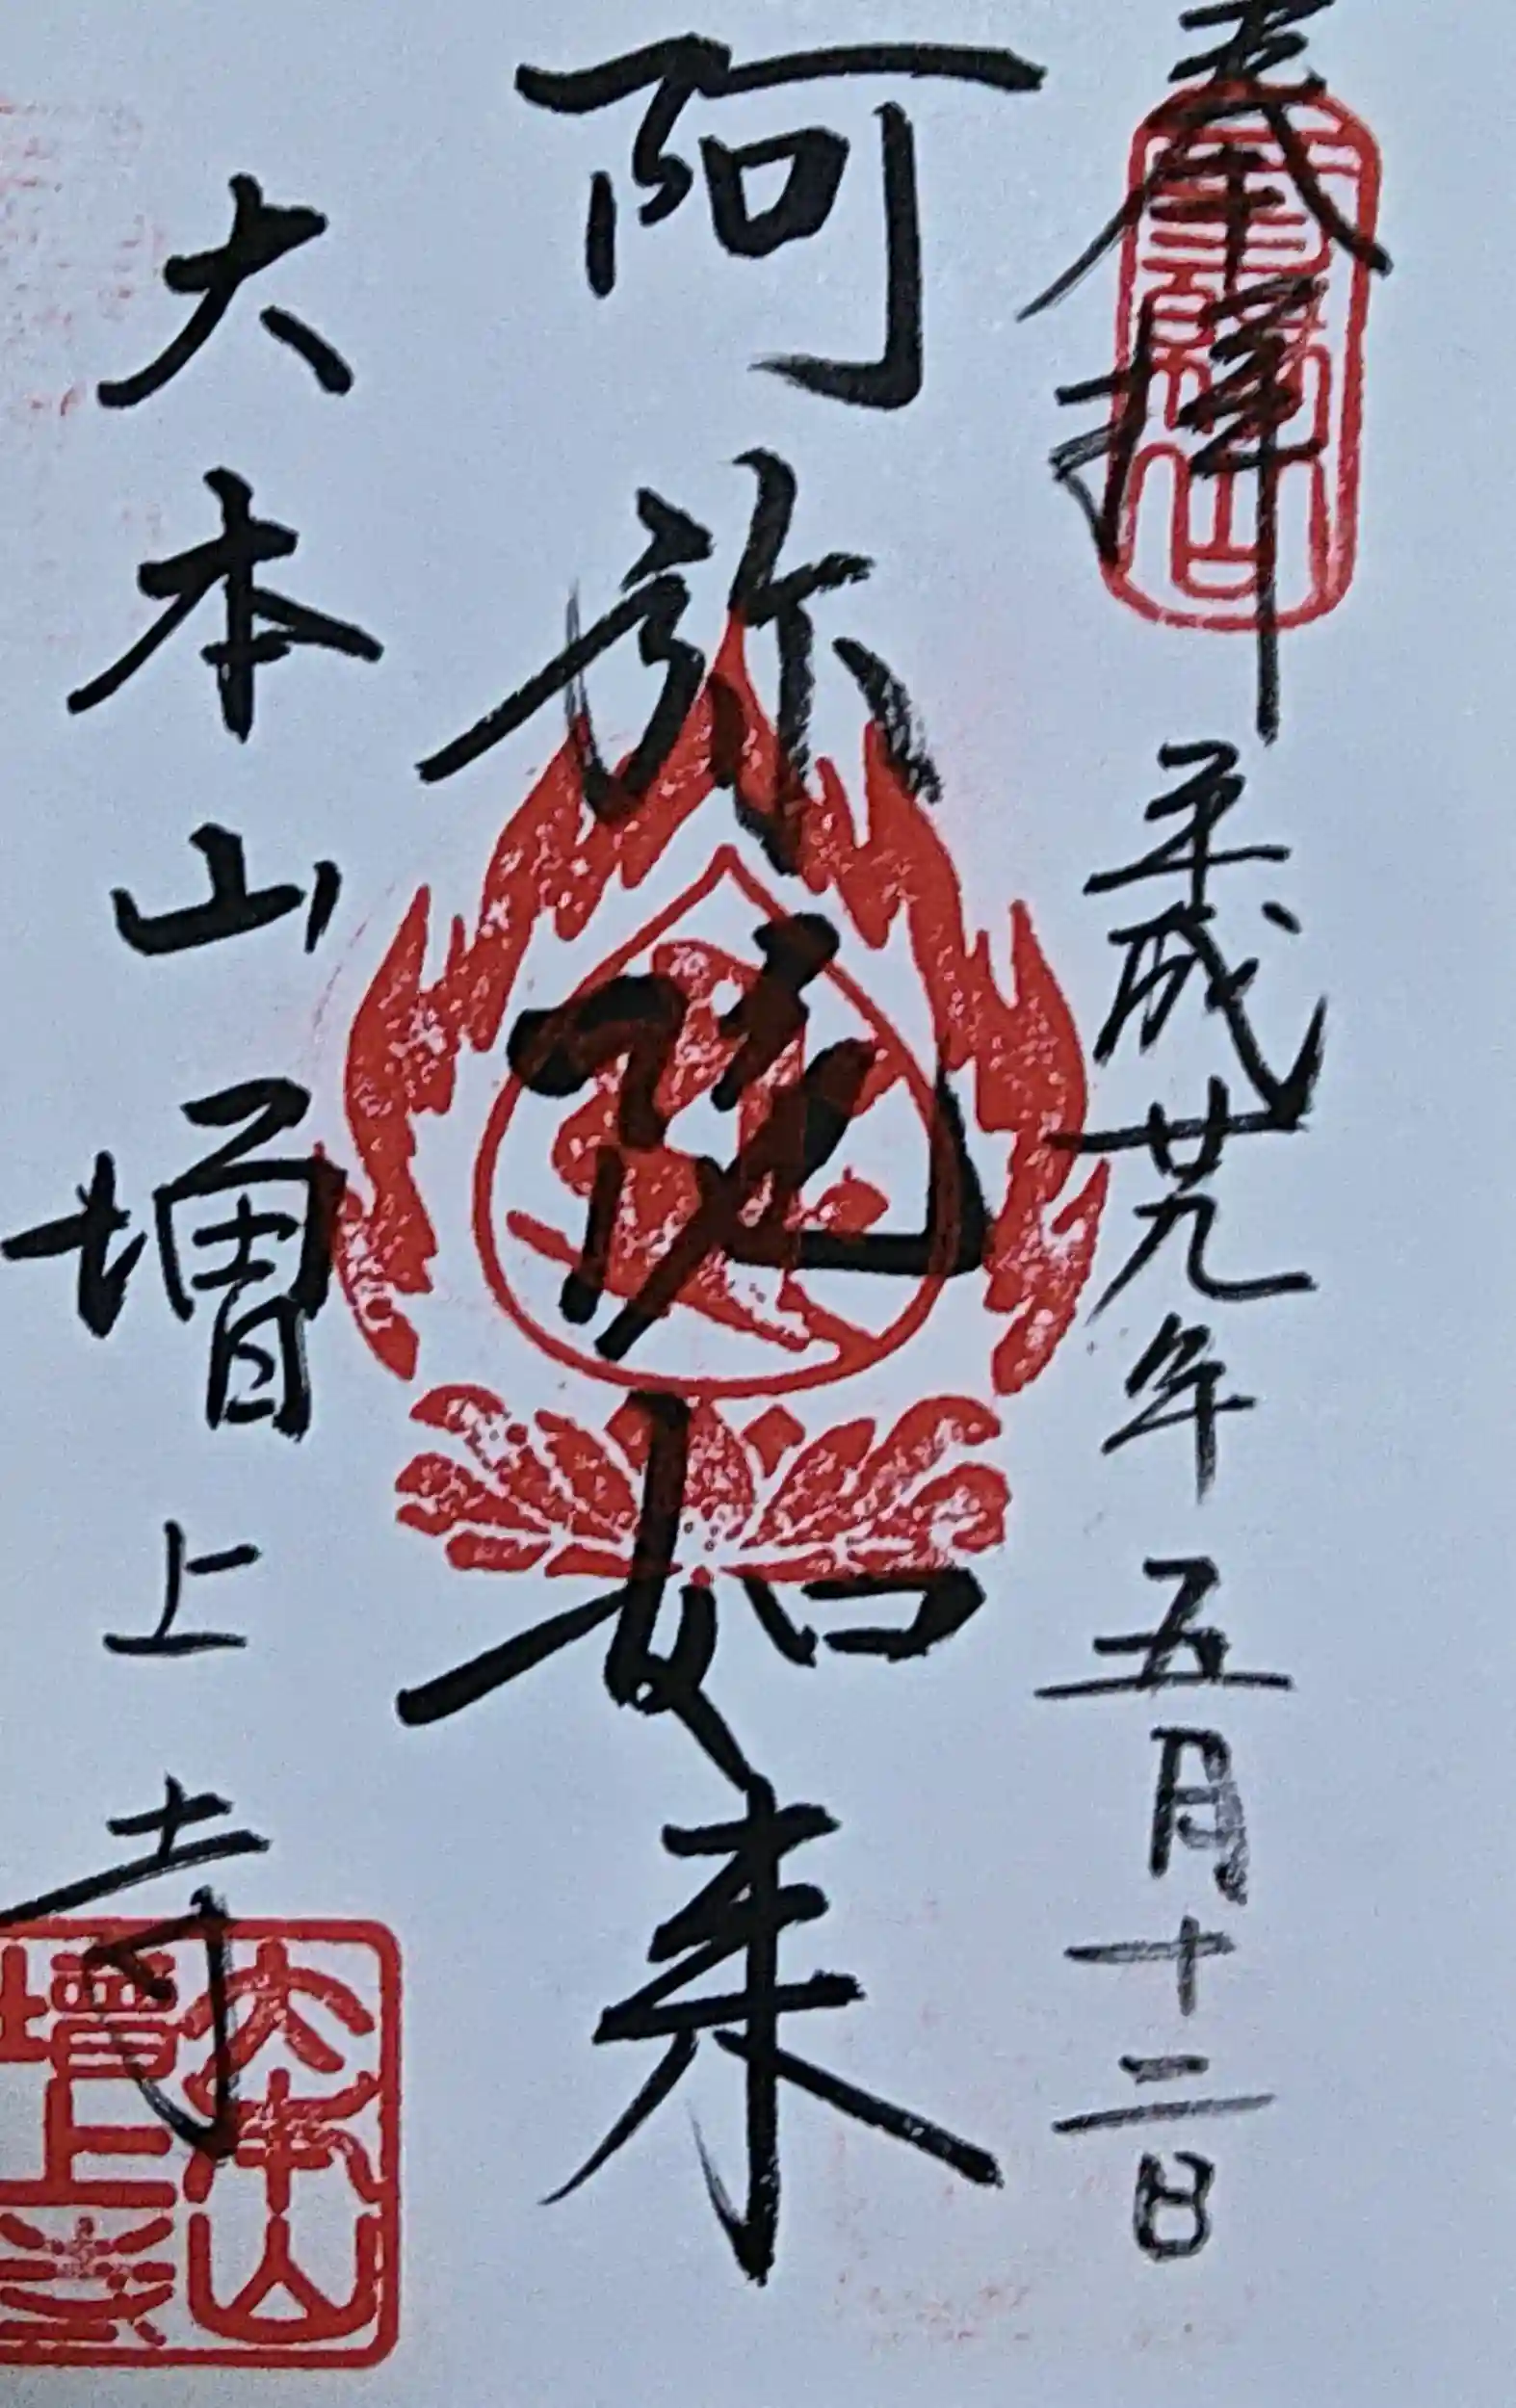 奉拝 平成廿九年五月十二日
阿弥陀如来
大本山増上寺
大本山
増上寺